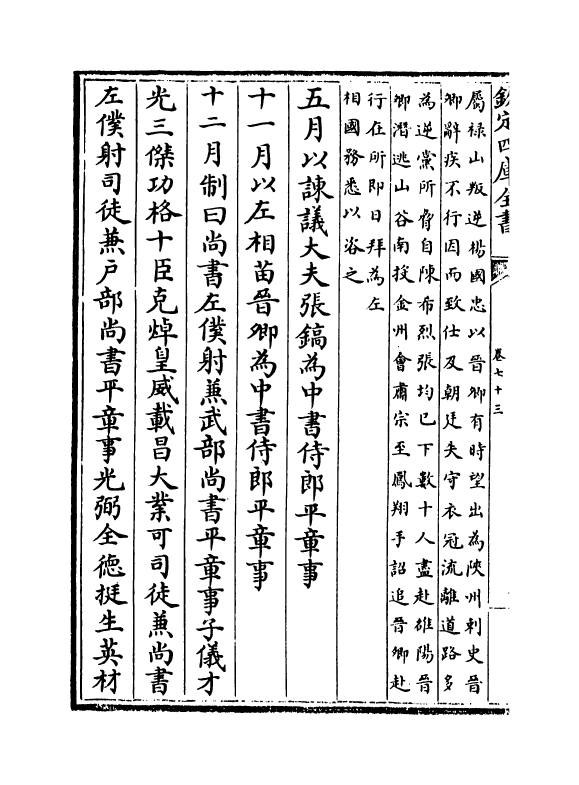 欽定四庫全書
卷七十三
屬禄山叛逆楊國忠以晉卿有時望出為陜州刺史晉
卿辭疾不行因而致仕及朝廷失守衣冠流離道路多
為逆黨所脅自陳希烈張均已下數十人盡赴雒陽晉
卿潛逃山谷南投金州會肅宗至鳳翔手詔追晉卿赴
行在所即日拜為左
相國務悉以咨之
五月以諫議大夫張鎬為中書侍郎平章事
十一月以左相苗晉卿為中書侍郎平章事
十二月制曰尚書左僕射兼武部尚書平章事子儀才
光三傑功格十臣克焯皇威載昌大業可司徒兼尚書
左僕射司徒兼户部尚書平章事光弼全徳挺生英材